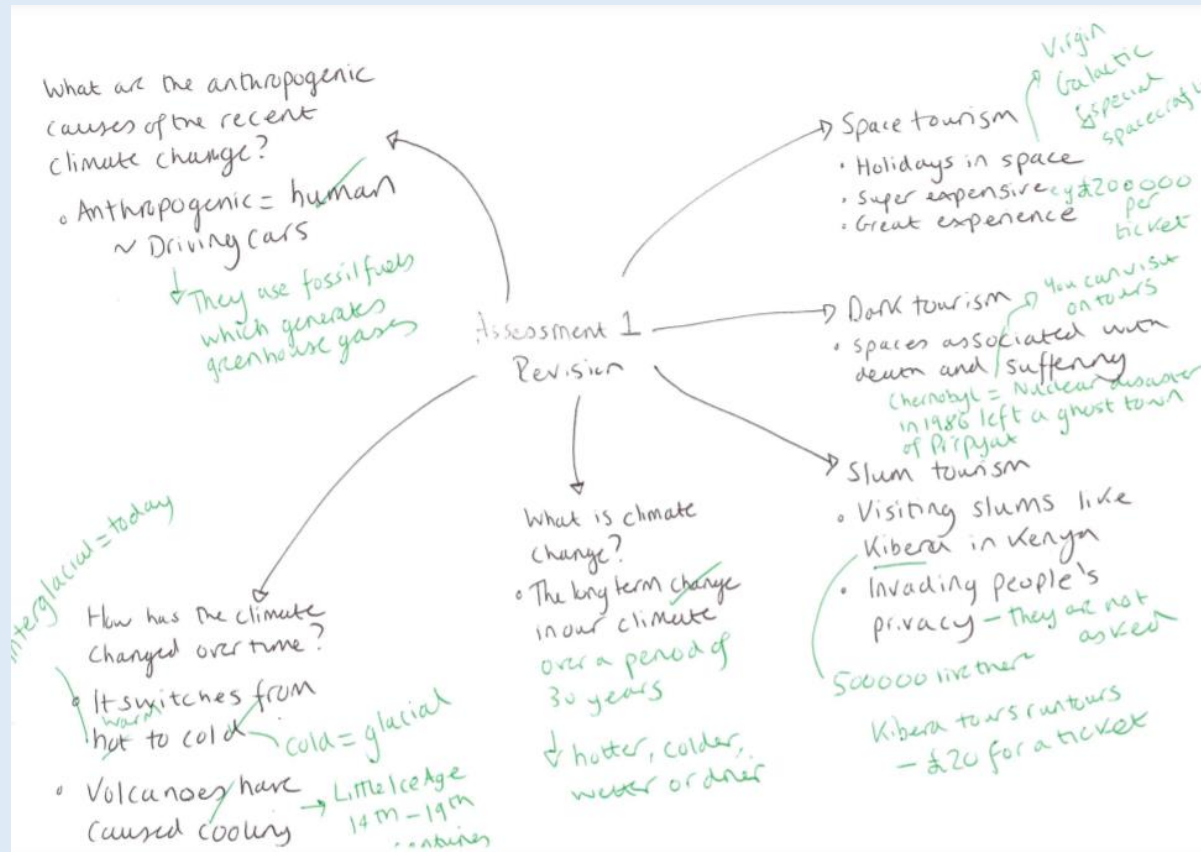 What are the anthropogenic
causes of the recent
climate change?
• Anthropogenic = human
~ Driving cars
They use fossil fuels
which generates
greenhouse gases
Assessment 1
Revision
Space tourism
• Holidays in space
• Super expensive eg £200000
per
ticket
• Great experience
Virgin
Galactic
special
spacecraft
Dark tourism
You can visit
on tours
• spaces associated with
death and suffering
Chernobyl = Nuclear disaster
in 1986 left a ghost town
of Pirpyat
Slum tourism
• Visiting slums like
Kibera in Kenya
• Invading people's
privacy - They are not
asked
500000 live there
Kibera tours run tours
- £20 for a ticket
What is climate
change?
• The long term change
in our climate
over a period of
30 years
hotter, colder,
wetter or drier
How has the climate
changed over time?
• It switches from
warm
hot to cold
cold = glacial
interglacial = today
• Volcanoes have
caused cooling
Little Ice Age
14th - 19th